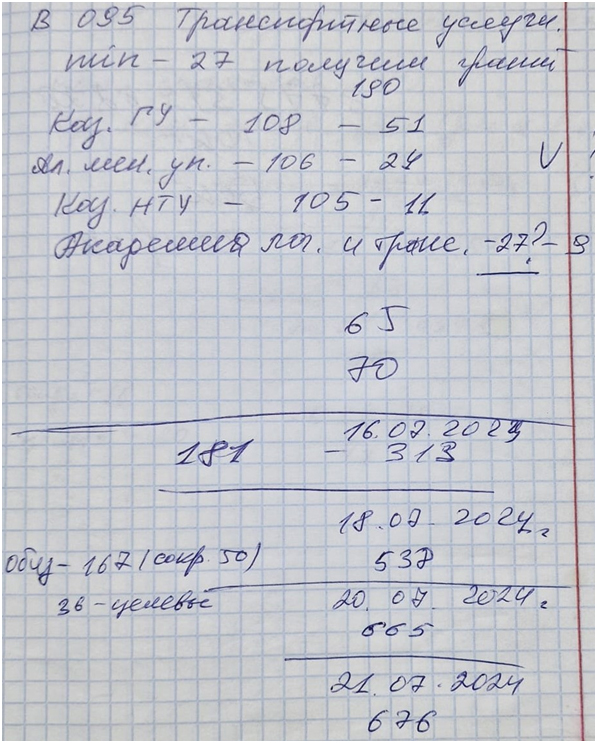 В 095 Транспортные услуги.
min - 27 получили грант
190
Каз. ГУ - 108 - 51
Ал. мен. ун. - 106 - 24
Каз. НТУ - 105 - 11
Академия лог. и транс. -27? - 9
65
70
16.07.2024
181 - 313
18.07.2024г
Общ - 167 (сокр. 50) 537
36 - целевые 20.07.2024г
665
21.07.2024
676